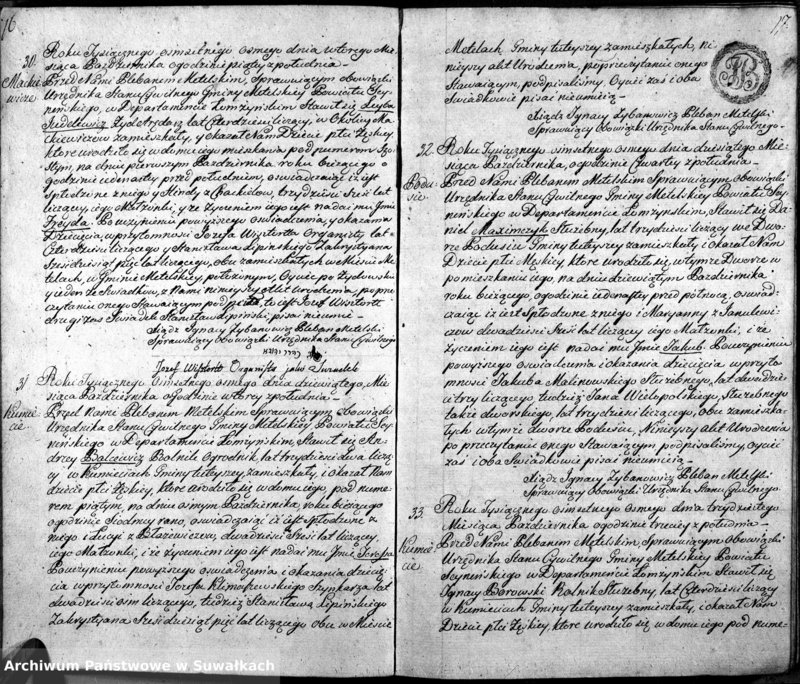 16
30.
Mackiewicze
Roku Tysiącznego osmsetnego osmego dnia wtorego Mie-
siąca Pazdziernika o godzinie piątey z południa -
Przed Nami Plebanem Metelskim, Sprawuiącym obowiązki
Urzędnika Stanu Cywilnego Gminy Metelskiey Powiatu Sey-
neńskiego, w Departamencie Łomżyńskim, Stawił się Leyba
Judelowicz Zyd Arędarz, lat Czterdzieści liczący, w Okolicy Ma-
ckiewiczow zamieszkały, y okazał Nam Dziecie płci Zęskiey,
ktore urodziło się w domu iego mieszkania pod numerem Szo-
stym, na dniu pierwszym Pazdziernika roku bieżącego o
godzinie iedenastey przed południem, oswiadczaiąc iż iest
Spłodzone z niego y Hindy z Chackielow, trzydzieści Sześć lat
liczącey iego Małżonki, y że życzeniem iego iest nadać mu Jmie
Frejda. Po uczynieniu powyższego oswiadczenia y okazaniu
Dziecięcia w przytomności Jozefa Wisztorta Organisty, lat
Czterdzieści liczącego y Stanisława Lipińskiego Zakrystyana
Sześcdziesiąt pięć lat liczącego, obu zamieszkałych w Mieście Me-
telach, w Gminie Metelskiey, położonym, Oyciec po Zydowsku
y ieden ze Swiadkow, z Nami ninieyszy Akt Urodzenia, po prze-
czytaniu onego Stawaiącym podpisali, to iest Jozef Wisztort
drugi zas Swiadek Stanisław Lipiński pisać nieumie -
Xiądz Jgnacy Zybanowicz Pleban Metelski
Sprawuiący Obowiązki Urzędnika Stanu Cywilnego
Jozef Wisztort Organista jako Swiadek
31
Kumiecie
Roku Tysiącznego osmsetnego osmego dnia dziewiątego, Mie-
siąca Pazdziernika o godzinie wtorey z południa -
Przed Nami Plebanem Metelskim Sprawuiącym obowiązki
Urzędnika Stanu Cywilnego Gminy Metelskiey Powiatu Sey-
neńskiego w Departamencie Łomżyńskim, Stawił się An-
drzey Balcewicz Rolnik Ogrodnik, lat trzydzieści dwa liczą-
cy w Kumieciach Gminy tuteyszey zamieszkały, i okazał Nam
Dziecie płci Zęskiey, ktore urodziło się w domu iego pod nume-
rem piątym, na dniu osmym Pazdziernika, roku bieżącego
o godzinie Siodmey rano, oswiadczaiąc iż iest Spłodzone z
niego i Łucyi z Błażewiczow, dwadzieści Sześć lat liczącey
iego Małżonki, i że życzeniem iego iest nadać mu Jmie Teressa
Po uczynieniu powyższego oswiadczenia i okazaniu dziecię-
cia w przytomności Jozefa Klimaszewskiego Szynkarza, lat
dwadzieści osm liczącego, tudziesz Stanisława Lipińskiego
Zakrystyana Sześcdziesiąt pięć lat liczącego obu w Mieście
17
Metelach Gminy tuteyszey zamieszkałych, ni-
nieyszy akt Urodzenia, po przeczytaniu onego
Stawaiącym, podpisaliśmy, Oyciec zaś i oba
Swiadkowie pisać nieumieią -
Xiądz Jgnacy Zybanowicz Pleban Metelski
Sprawuiący Obowiązki Urzędnika Stanu Cywilnego -
32.
Bodusie
Roku Tysiącznego osmsetnego osmego dnia dziesiątego Mie-
siąca Pazdziernika, o godzinie Czwartey z południa -
Przed Nami Plebanem Metelskim Sprawuiącym Obowiązki
Urzędnika Stanu Cywilnego Gminy Metelskiey Powiatu Sey-
neńskiego w Departamencie Łomżyńskim, Stawił się Da-
niel Maximczyk Służebny, lat trzydzieści liczący we Dwo-
rze Bodusiu Gminy tuteyszey zamieszkały i okazał Nam
Dziecie płci Męskiey, ktore urodziło się, w tymże Dworze w
pomieszkaniu iego, na dniu dziewiątym Pazdziernika
roku bieżącego, o godzinie iedenastey przed północą, oswiad-
czaiąc iż iest Spłodzone z niego i Maryanny z Janulewi-
czow dwadzieści Sześć lat liczącey iego Małżonki, i że
życzeniem iego iest nadać mu Jmie Jakub. Po uczynieniu
powyższego oswiadczenia i okazania dziecięcia w przyto-
mności Jakuba Malinowskiego Służebnego, lat dwadzieści
trzy liczącego, tudziesz Jana Wielopolskiego, Służebnego
także dworskiego, lat trzydzieści liczącego, obu zamieszka-
łych w tymże dworze Bodusiu, Ninieyszy Akt Urodzenia
po przeczytaniu onego Stawaiącym podpisaliśmy, Oyciec
zaś i oba Swiadkowie pisać nieumieią -
Xiądz Jgnacy Zybanowicz Pleban Metelski
Sprawuiący Obowiązki Urzędnika Stanu Cywilnego
33.
Kumiecie
Roku Tysiącznego osmsetnego osmego dnia trzydziestego
Miesiąca Pazdziernika o godzinie trzeciey z południa -
Przed Nami Plebanem Metelskim, Sprawuiącym obowiązki
Urzędnika Stanu Cywilnego Gminy Metelskiey Powiatu
Seyneńskiego w Departamencie Łomżyńskim Stawił się
Jgnacy Borowski Rolnik Służebny, lat Czterdzieści liczący
w Kumieciach Gminy tuteyszey zamieszkały, i okazał Nam
Dziecie płci Zęskiey, ktore urodziło się w domu iego pod nume-
Archiwum Państwowe w Suwałkach